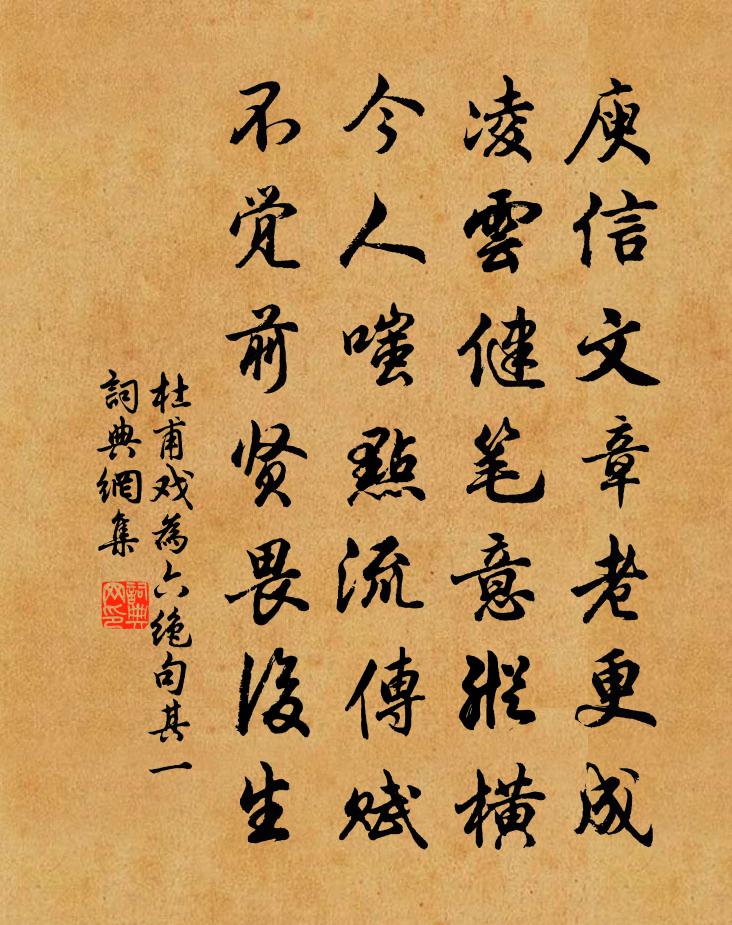 庾信文章老更成
凌雲健笔意縱橫
今人嗤點流傳赋
不覚前贤畏後生
杜甫戏為六絶句其一
詞典網集
詞典网印